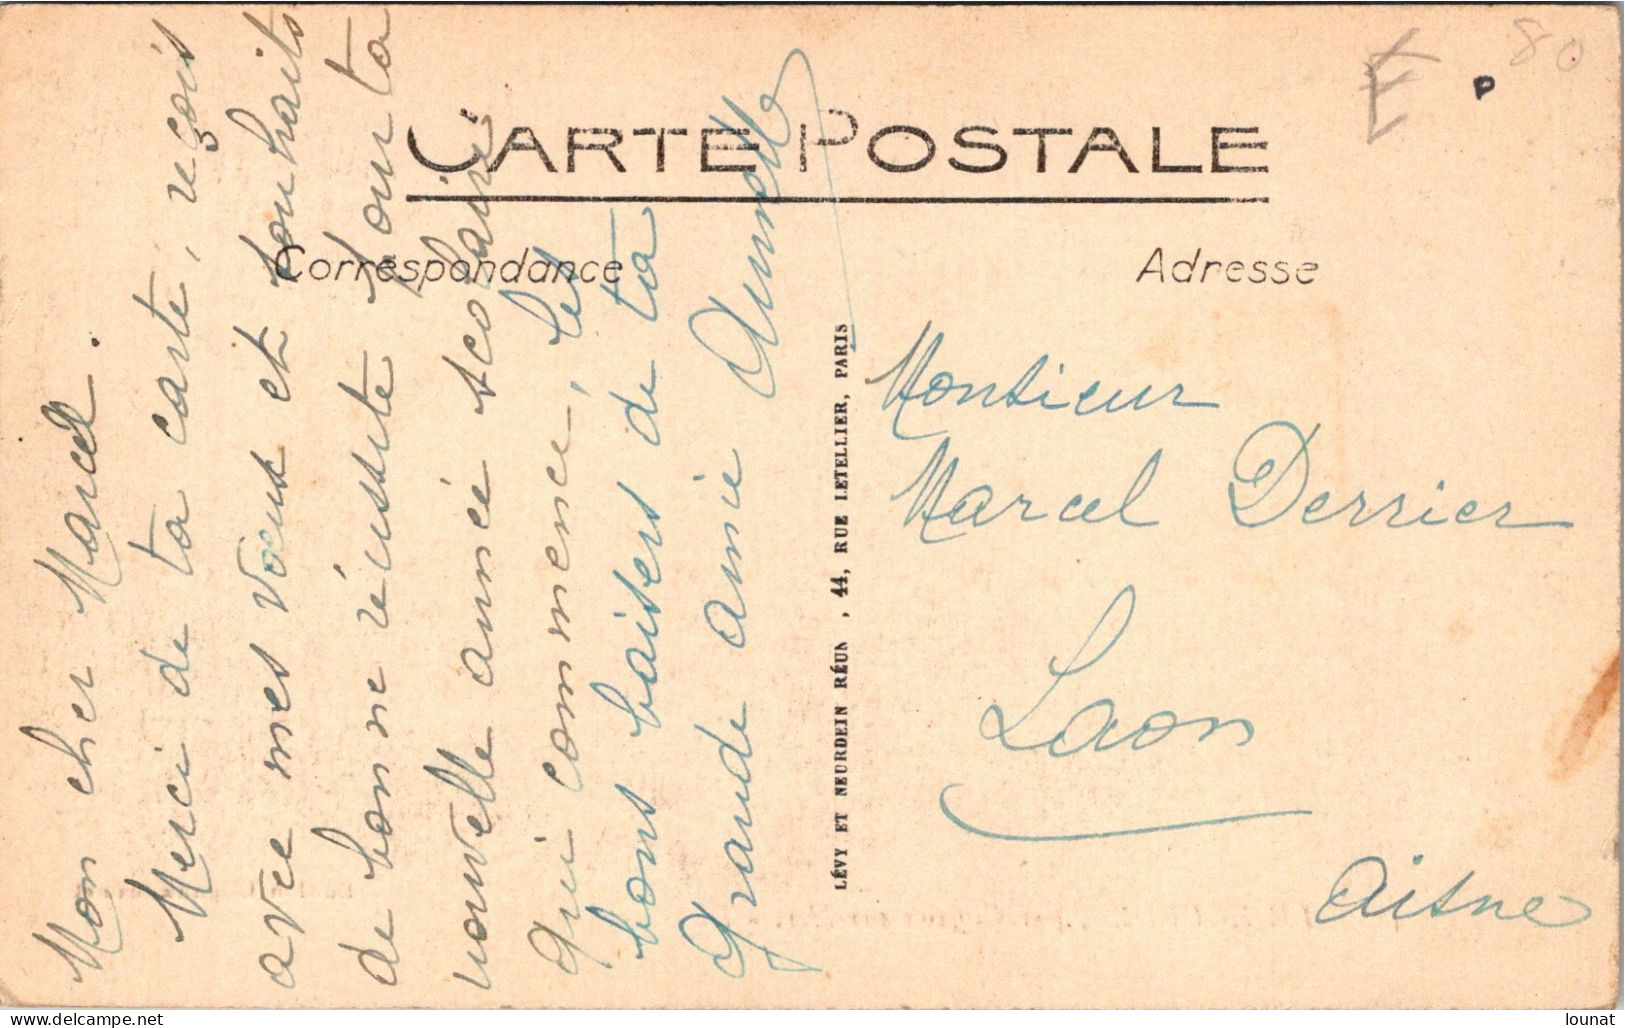 E
P
80
CARTE POSTALE
Correspondance
Adresse
Mon cher Marcel.
Merci de ta carte, reçois
avec mes vœux et souhaits
de bonne réussite pour ta
nouvelle année scolaire
qui commence, les
bons baisers de ta
Grande amie Annette
LÉVY ET NEURDEIN RÉUN , 44, RUE LETELLIER, PARIS
Monsieur
Marcel Derrier
Laon
Aisne
www.delcampe.net
lounat